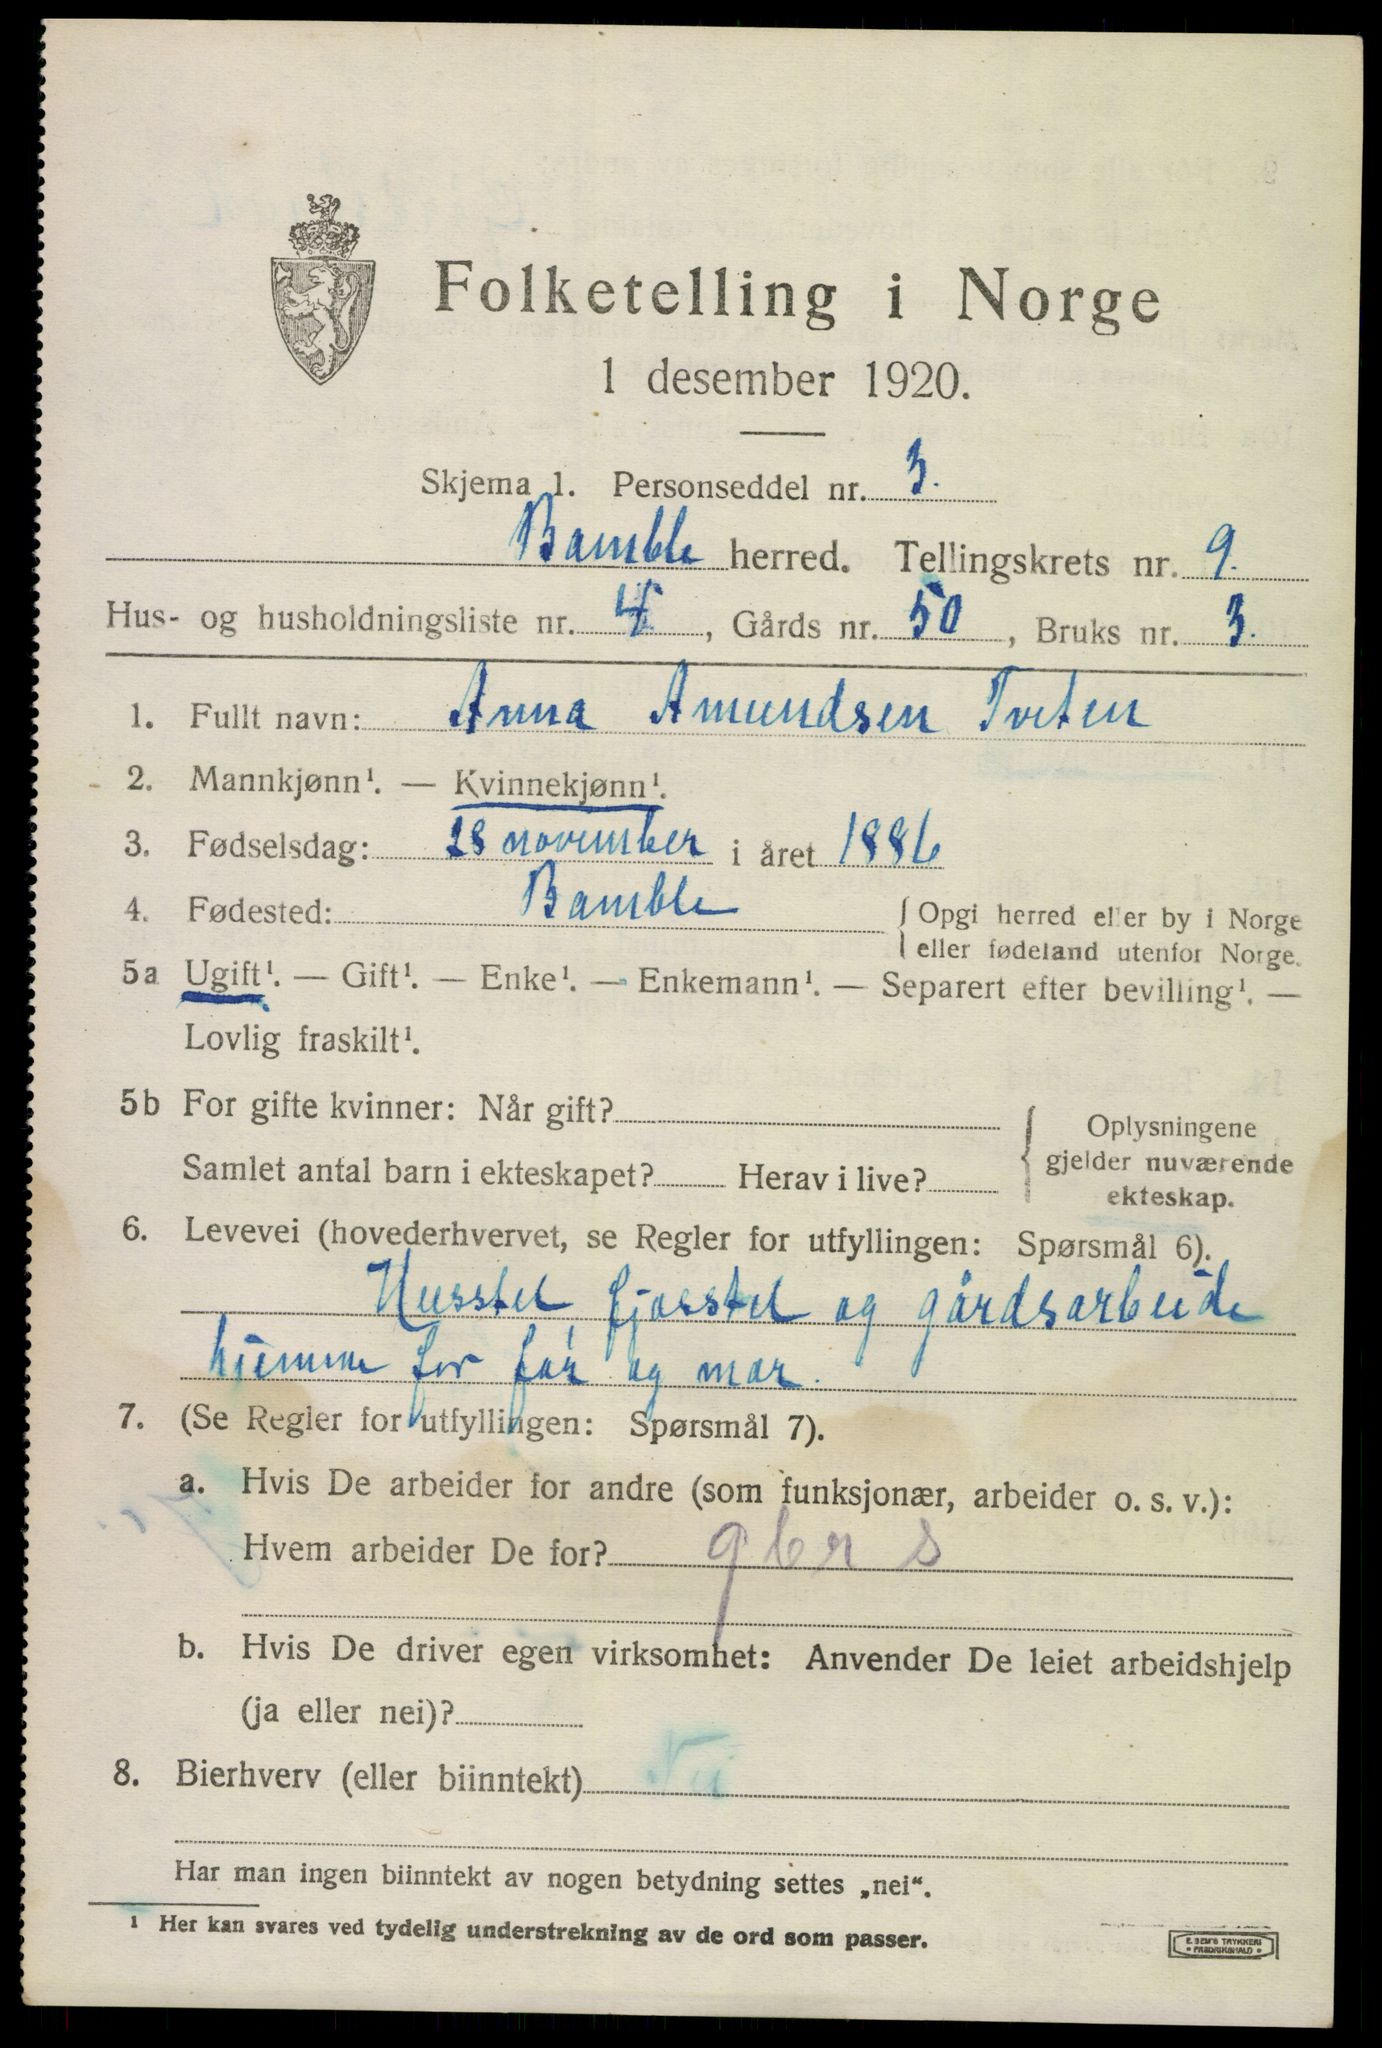 Folketelling i Norge
1 desember 1920.
Skjema 1. Personseddel nr. 3.
Bamble herred. Tellingskrets nr. 9.
Hus- og husholdningsliste nr. 4, Gårds nr. 50, Bruks nr. 3.
1. Fullt navn: Anna Amundsen Tveten
2. Mannkjønn¹. — Kvinnekjønn¹.
3. Fødselsdag: 28 november i året 1886
4. Fødested: Bamble
{ Opgi herred eller by i Norge
eller fødeland utenfor Norge.
5a Ugift¹. — Gift¹. — Enke¹. — Enkemann¹. — Separert efter bevilling¹. —
Lovlig fraskilt¹.
5b For gifte kvinner: Når gift?
Samlet antal barn i ekteskapet? Herav i live?
{ Oplysningene
gjelder nuværende
ekteskap.
6. Levevei (hovederhvervet, se Regler for utfyllingen: Spørsmål 6).
Husstel fjosstel og gårdsarbeide
hjemme for far og mor.
7. (Se Regler for utfyllingen: Spørsmål 7).
a. Hvis De arbeider for andre (som funksjonær, arbeider o. s. v.):
Hvem arbeider De for? gbr s
b. Hvis De driver egen virksomhet: Anvender De leiet arbeidshjelp
(ja eller nei)?
8. Bierhverv (eller biinntekt) Nei
Har man ingen biinntekt av nogen betydning settes „nei“.
¹ Her kan svares ved tydelig understrekning av de ord som passer.
E. SEM'S TRYKKERI
• FREDRIKSHALD •